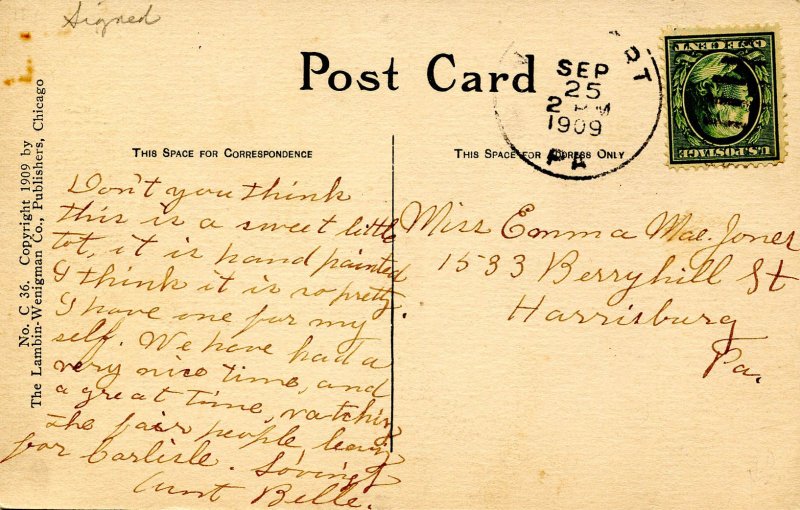 Signed
Post Card
SEP
25
2 PM
1909
PA
U.S. POSTAGE
THIS SPACE FOR CORRESPONDENCE
THIS SPACE FOR ADDRESS ONLY
No. C 36. Copyright 1909 by
The Lambin-Wenigman Co., Publishers, Chicago
Don't you think
this is a sweet little
tot, it is hand painted
I think it is so pretty.
I have one for my
self. We have had a
very nice time, and
a great time, watching
the fair people leaving
for Carlisle. Lovingly
Aunt Belle.
Miss Emma Mae Jones
1533 Berryhill St
Harrisburg
Pa.